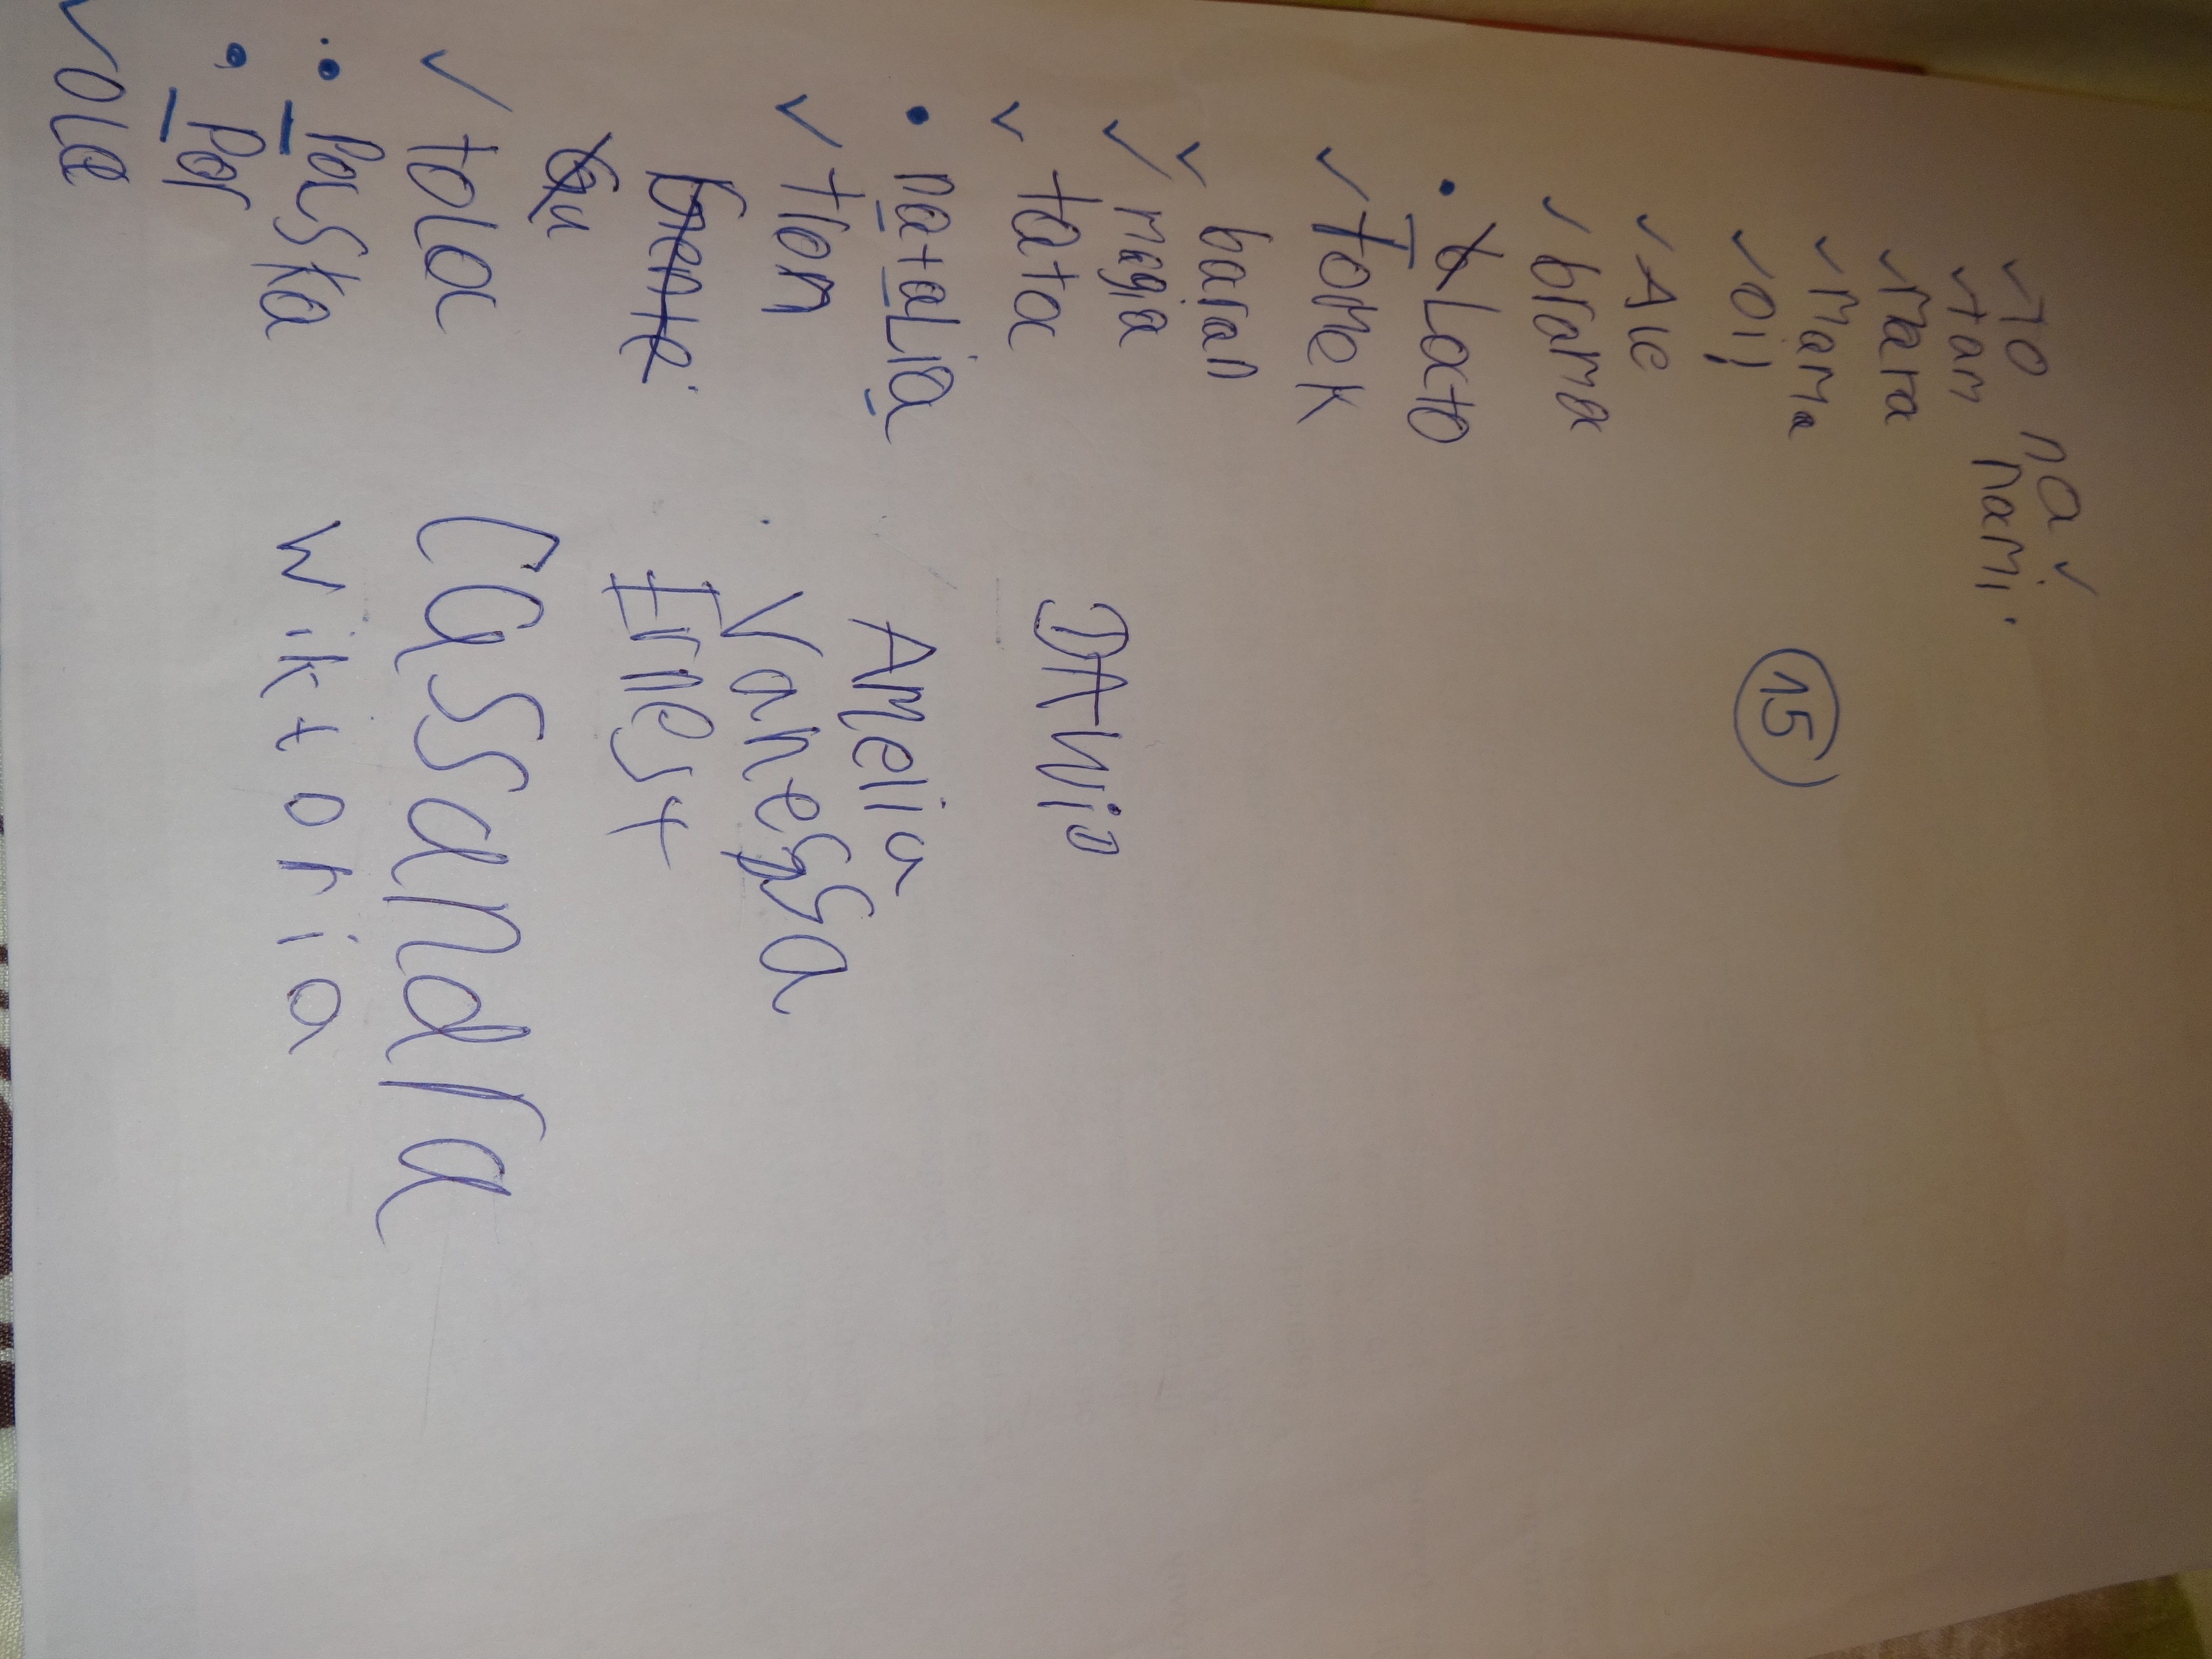 To na
tam nami
mara
mama
oij
Ale
brama
Lato
Tomek
baran
magia
tata
nataLia
tlen
tola
Paska
Par
ola
15
DAWiD
Amelia
Vanessa
Ernest
Cassandra
wiktoria